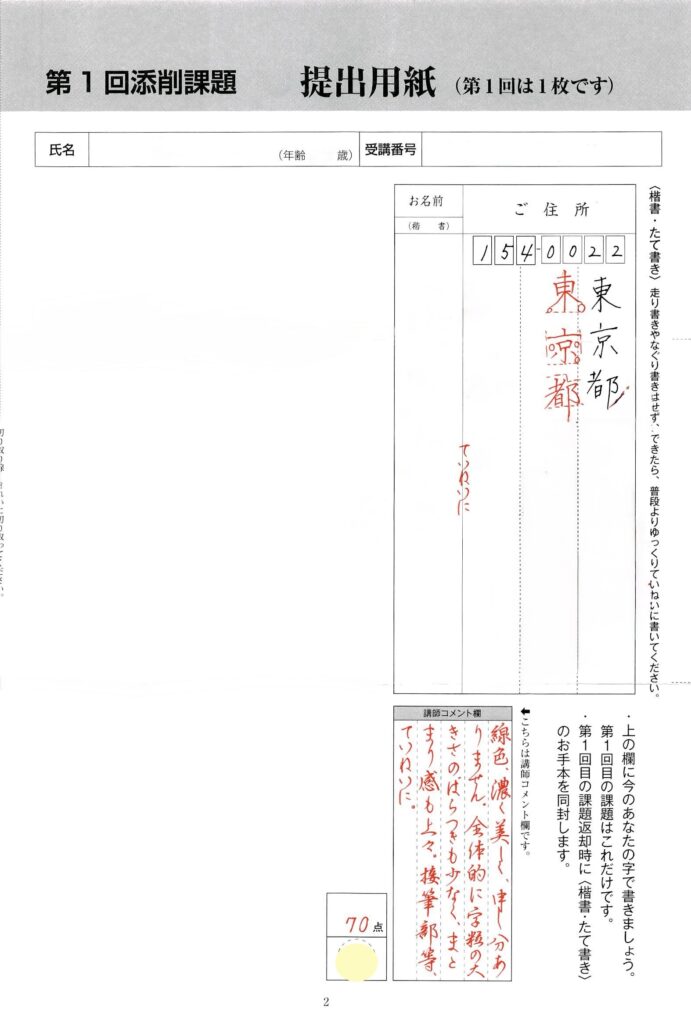 第1回添削課題 提出用紙(第1回は1枚です)
氏名
(年齢 歳)
受講番号
〈楷書・たて書き〉走り書きやなぐり書きはせず、できたら、普段よりゆっくりていねいに書いてください。
ご住所
154-0022
東京都
東京都
お名前
(楷書)
ていねいに
・上の欄に今のあなたの字で書きましょう。
第1回目の課題はこれだけです。
・第1回目の課題返却時に〈楷書・たて書き〉
のお手本を同封します。
⬅こちらは講師コメント欄です。
講師コメント欄
線色、濃く美しく、申し分あ
りません。全体的に字粒の大
きさのばらつきも少なく、まと
まり感も上々。接筆部等、
ていねいに。
70点
2